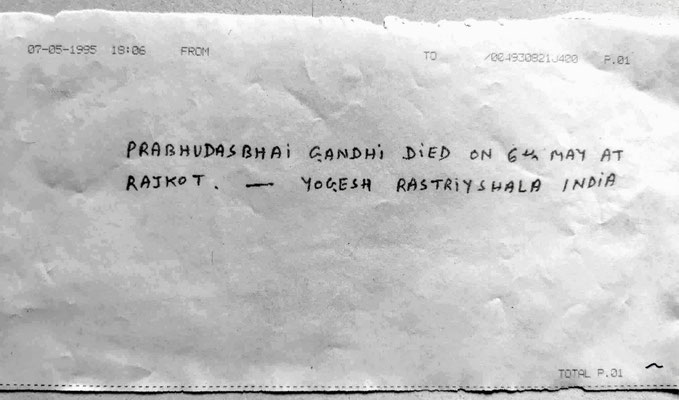 07-05-1995 18:06 FROM TO P.01
PRABHUDASBHAI GANDHI DIED ON 6th MAY AT
RAJKOT. — YOGESH RASTRIYSHALA INDIA
TOTAL P.01